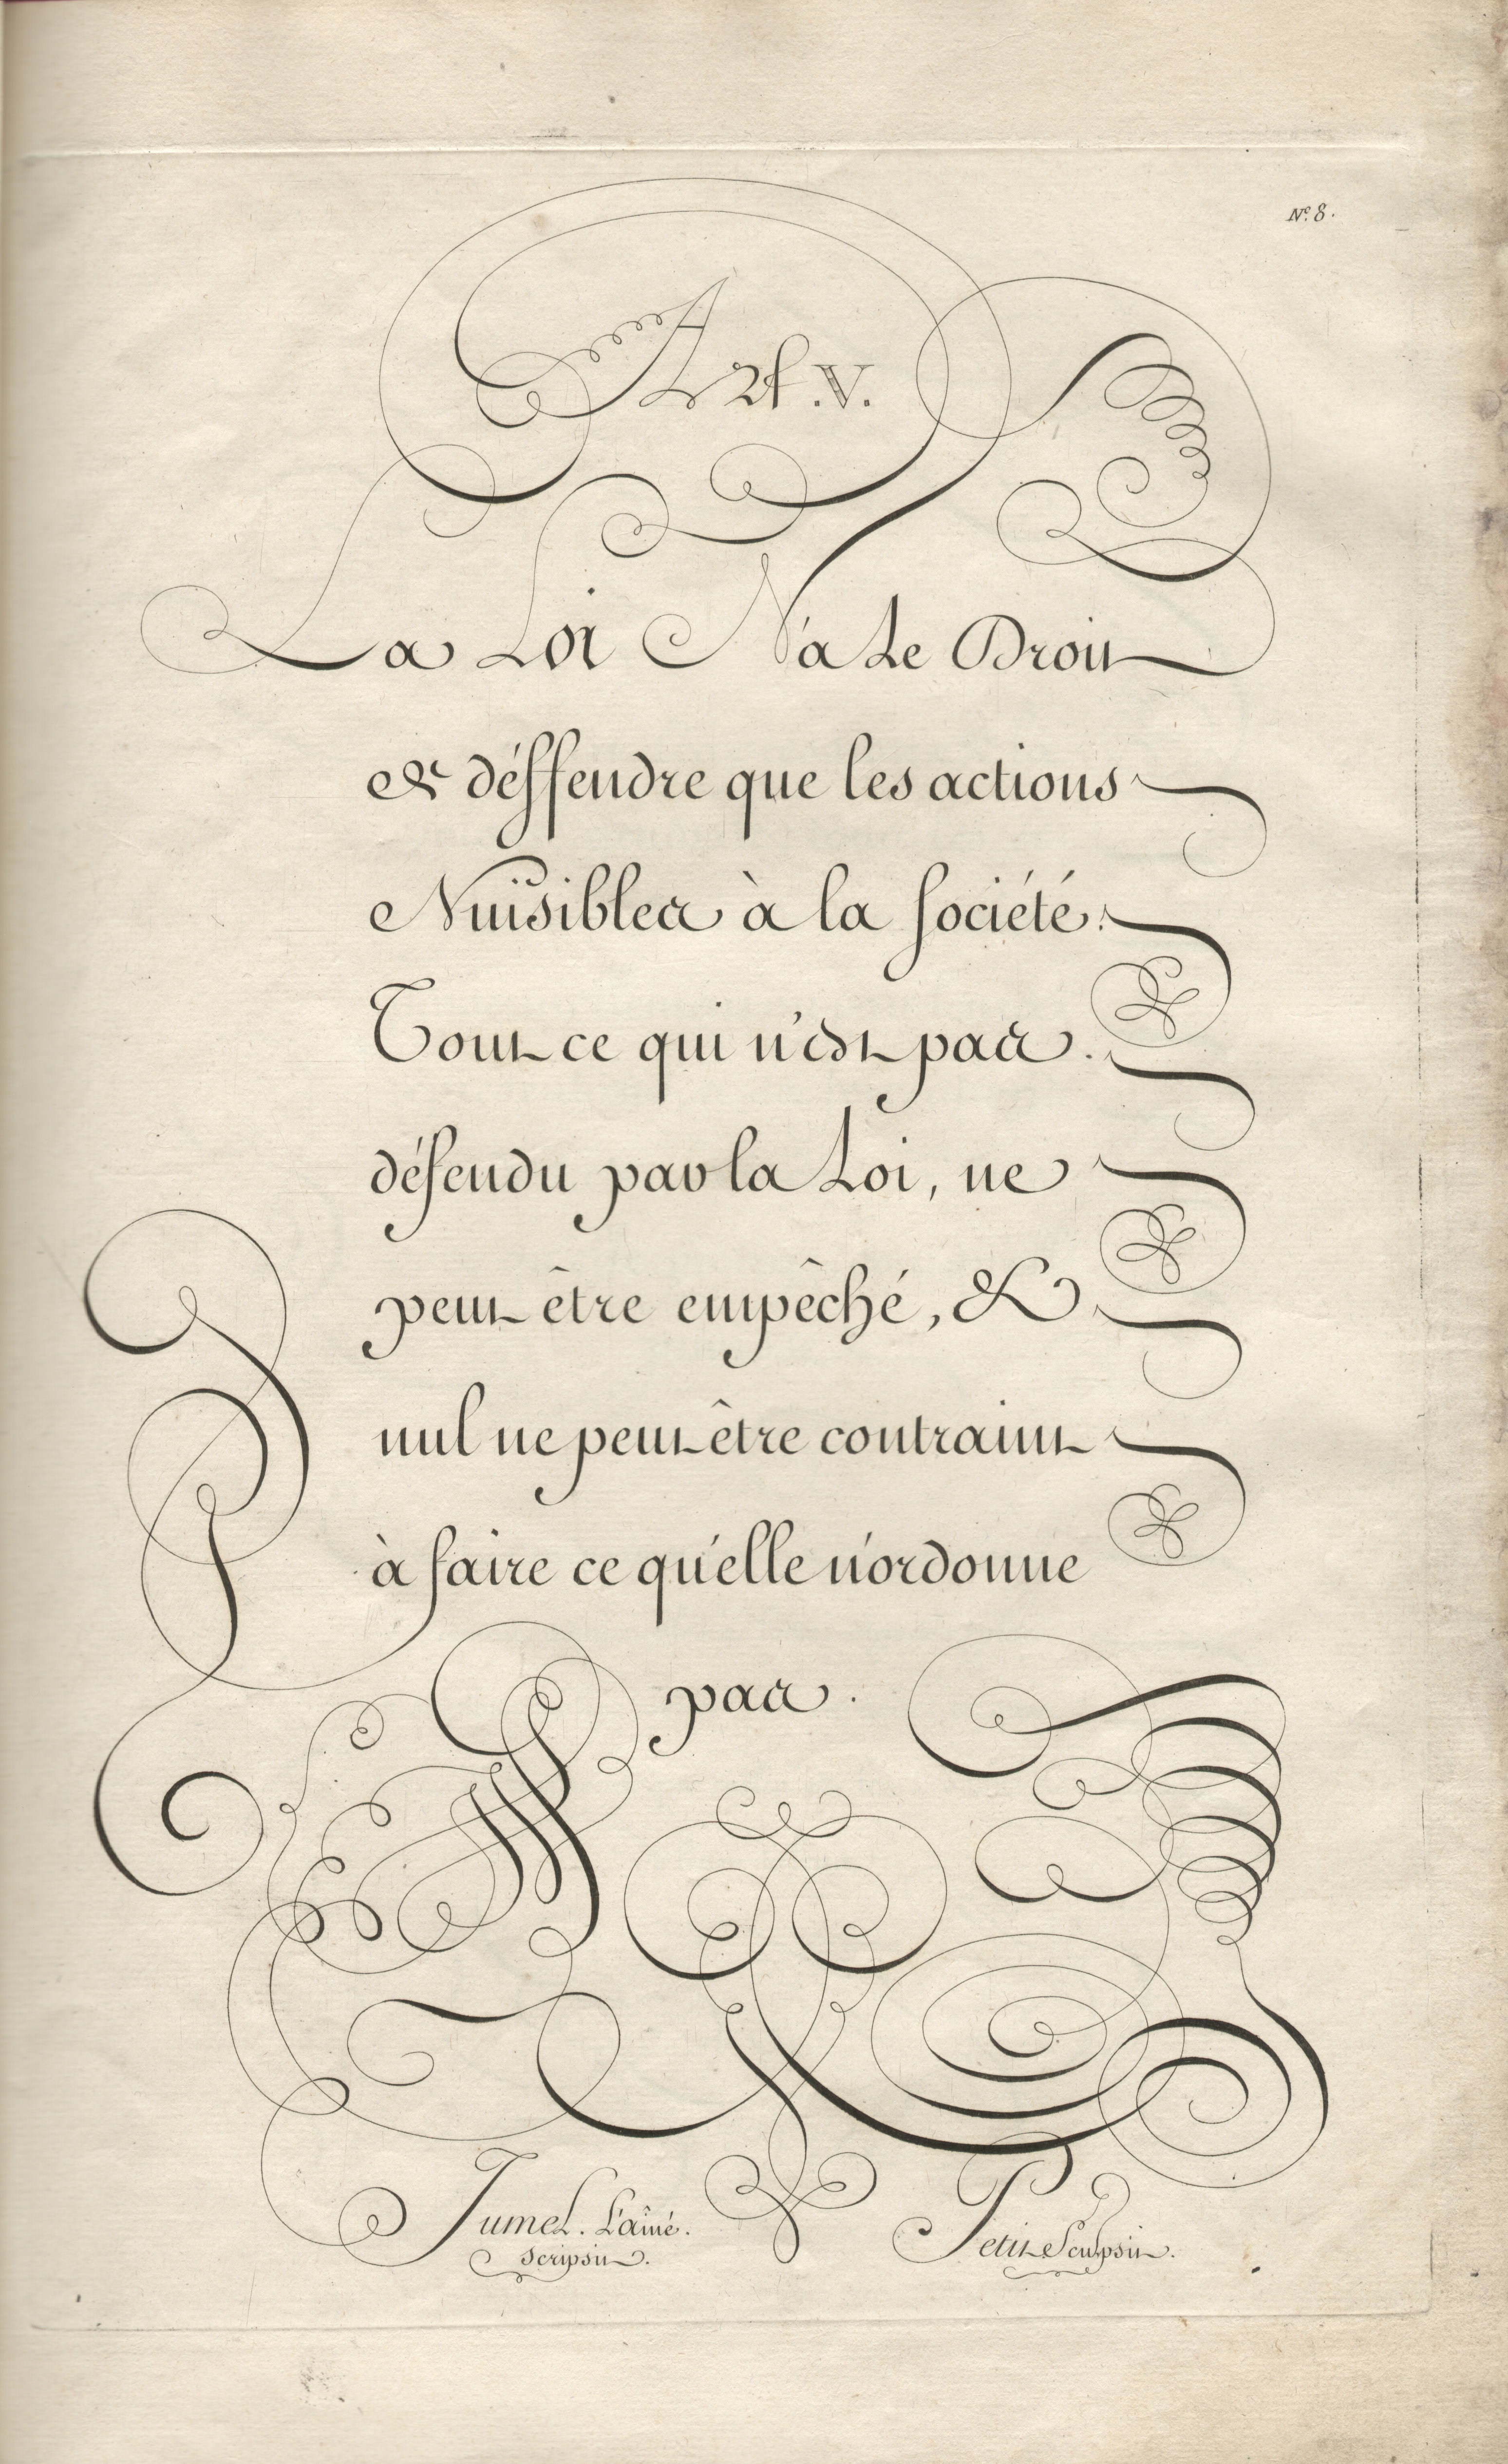 Nº. 8.
Art. V.
La Loi N'a Le Droit
& déffendre que les actions
Nuisibles à la Société.
Tout ce qui n'est pas
défendu par la Loi, ne
peut être empêché, &
nul ne peut être contraint
à faire ce qu'elle n'ordonne
pas.
Jumel. L'aîné. Petit Sculpsit.
Scripsit.